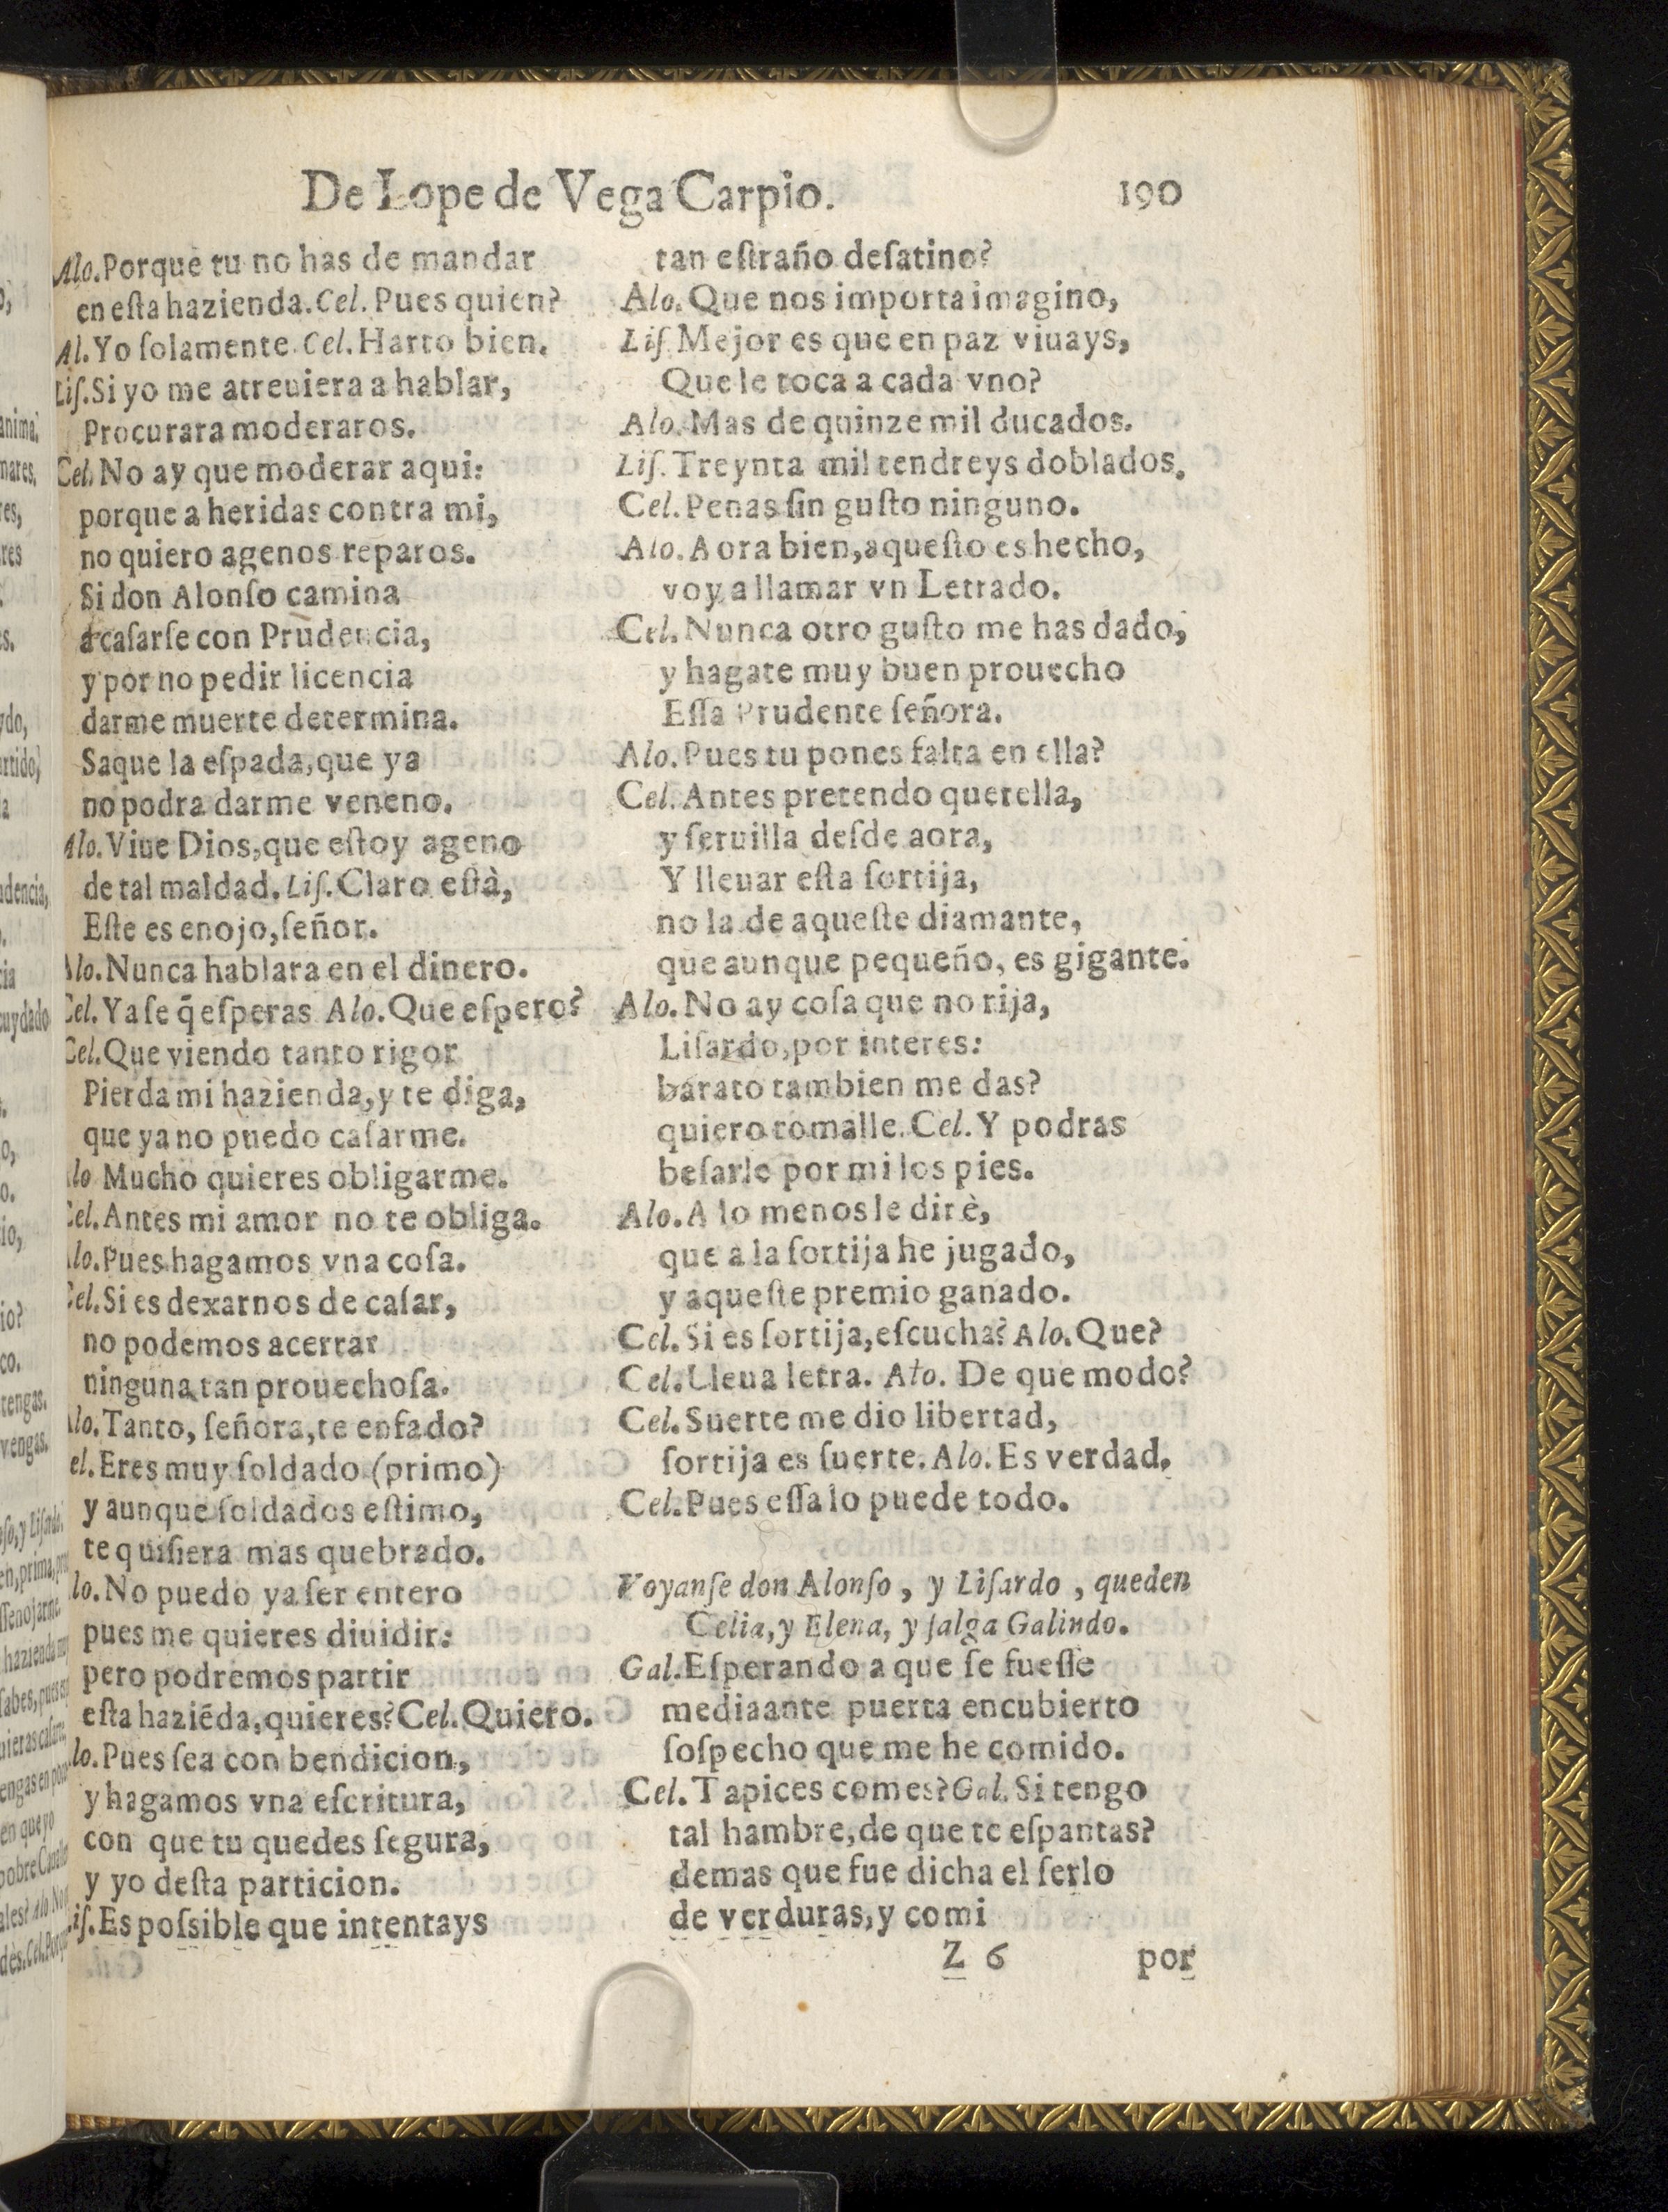 De Lope de Vega Carpio.
190
Alo. Porque tu no has de mandar
en eſta hazienda. Cel. Pues quien?
Al. Yo ſolamente. Cel. Harto bien.
Liſ. Si yo me atreuiera a hablar,
Procurara moderaros.
Cel. No ay que moderar aqui:
porque a heridas contra mi,
no quiero agenos reparos.
Si don Alonſo camina
a caſarſe con Prudencia,
y por no pedir licencia
darme muerte determina.
Saque la eſpada, que ya
no podra darme veneno.
Alo. Viue Dios, que eſtoy ageno
de tal maldad. Liſ. Claro eſtà,
Eſte es enojo, ſeñor.
Alo. Nunca hablara en el dinero.
Cel. Ya ſe q̃ eſperas Alo. Que eſpero?
Cel. Que viendo tanto rigor
Pierda mi hazienda, y te diga,
que ya no puedo caſarme.
lo Mucho quieres obligarme.
Cel. Antes mi amor no te obliga.
lo. Pues hagamos vna coſa.
Cel. Si es dexarnos de caſar,
no podemos acertar
ninguna tan prouechoſa.
lo. Tanto, ſeñora, te enfado?
el. Eres muy ſoldado (primo)
y aunque ſoldados eſtimo,
te quiſiera mas quebrado.
lo. No puedo ya ſer entero
pues me quieres diuidir:
pero podremos partir
eſta haziẽda, quieres? Cel. Quiero.
lo. Pues ſea con bendicion,
y hagamos vna eſcritura,
con que tu quedes ſegura,
y yo deſta particion.
iſ. Es poſsible que intentays
tan eſtraño deſatino?
Alo. Que nos importa imagino,
Liſ. Mejor es que en paz viuays,
Que le toca a cada vno?
Alo. Mas de quinze mil ducados.
Liſ. Treynta mil tendreys doblados.
Cel. Penas ſin guſto ninguno.
Alo. Aora bien, aqueſto es hecho,
voy a llamar vn Letrado.
Cel. Nunca otro guſto me has dado,
y hagate muy buen prouecho
Eſſa Prudente ſeñora.
Alo. Pues tu pones falta en ella?
Cel. Antes pretendo querella,
y ſeruilla deſde aora,
Y lleuar eſta ſortija,
no la de aqueſte diamante,
que aunque pequeño, es gigante.
Alo. No ay coſa que no rija,
Liſardo, por interes:
barato tambien me das?
quiero tomalle. Cel. Y podras
beſarle por mi los pies.
Alo. A lo menos le dirè,
que a la ſortija he jugado,
y aqueſte premio ganado.
Cel. Si es ſortija, eſcucha? Alo. Que?
Cel. Lleua letra. Alo. De que modo?
Cel. Suerte me dio libertad,
ſortija es ſuerte. Alo. Es verdad.
Cel. Pues eſſa lo puede todo.
Voyanſe don Alonſo, y Liſardo, queden
Celia, y Elena, y ſalga Galindo.
Gal. Eſperando a que ſe fueſſe
mediaante puerta encubierto
ſoſpecho que me he comido.
Cel. Tapices comes? Gal. Si tengo
tal hambre, de que te eſpantas?
demas que fue dicha el ſerlo
de verduras, y comi
Z 6
por